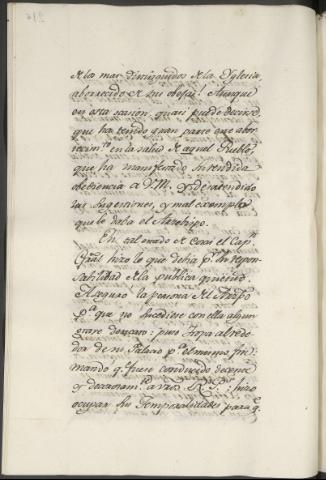 de los mas distinguidos de la Yglesia,
aborrecido de sus obejas! Aunque
en esta razon, quasi puede decirse
que ha tenido gran parte ese abor
recim.to en la salud de aquel Pueblo,
que ha manifestado intendida
obediencia a V.M. desatendido
las sugestiones, y mal exemplo
que le daba el Arzobispo.
En tal estado de cosas el Cap.n
Gral hizo lo que debia p.r la respon
sabilidad de la publica quietud.
Aseguró la persona del Arzpo
p.a que no sucediese con ella algun
grave desacato: puso tropa alrede
dor de su Palacio p.a el mismo fin
mando q.e fuese conducido decente
y decorosam.te a
ocupar sus Temporalidades para q.e